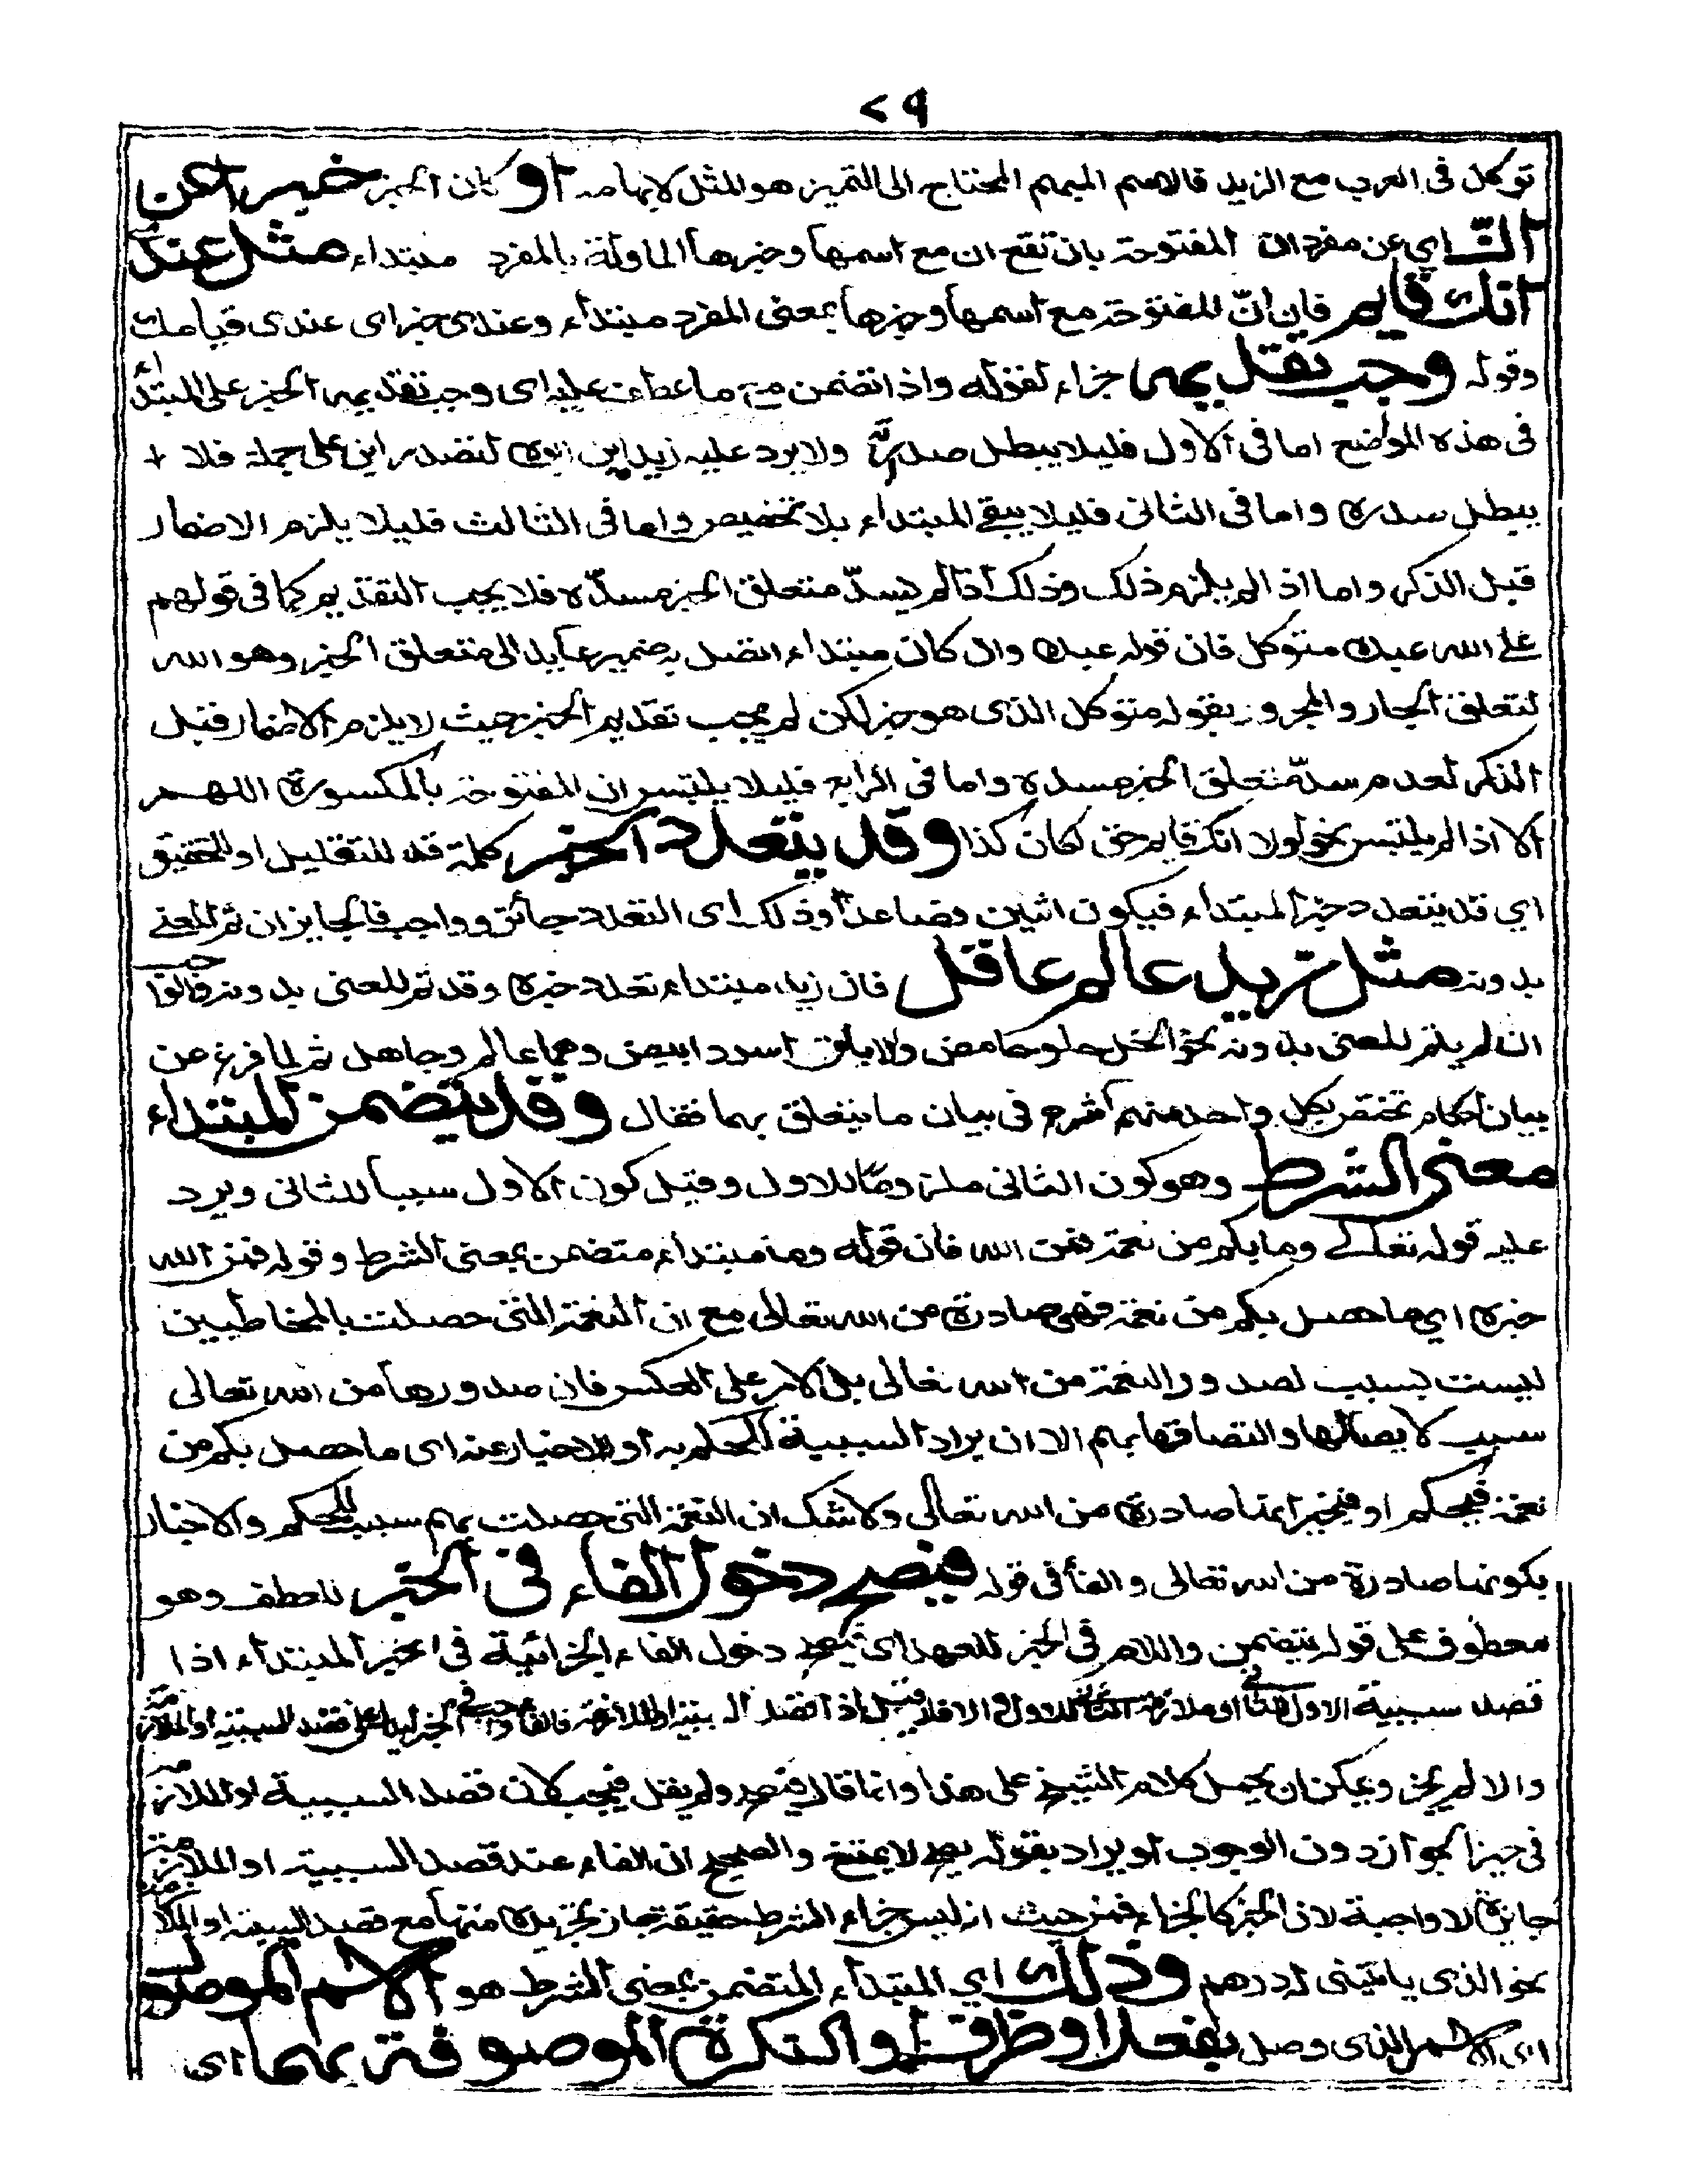 ٢٩
توكل في العرب مع الزيد فالاسم المبهم المحتاج الى التميز هو المثل لابهامه او كان الخبز خبرا عن
انّ اي عن مفرد ان المفتوحة بان تقع ان مع اسمها وخبرها الماولة بالمفرد مبتداء مثل عندى
انك قايم فان انّ المفتوحة مع اسمها وخبرها بمعنى المفرد مبتداء وعندى خبر اى عندى قيامك
وقوله وجب تقديمه جزاء لقوله واذا تضمن مع ما عطف عليه اى وجب تقديم الخبر على المبتداء
في هذه المواضع اما في الاول فليلا يبطل صدريته ولا يرد عليه زيد اين ابوه لتصدر اين على جملة فلا
يبطل صدره واما في الثانى فليلا يبقى المبتداء بلا تخصيص واما في الثالث فليلا يلزم الاضمار
قبل الذكر واما اذا لم يلزم ذلك وذلك اذا لم يسدّ متعلق الخبر مسدّه فلا يجب التقديم كما في قولهم
على الله عبده متوكل فان قوله عبده وان كان مبتداء اتصل به ضمير عايد الى متعلق الخبر وهو الله
لتعلق الجار والمجرور بقوله متوكل الذى هو خبر لكن لم يجب تقديم الخبر حيث لا يلزم الاضمار قبل
الذكر لعدم سدّ متعلق الخبر مسده واما في الرابع فليلا يلتبس ان المفتوحة بالمكسورة اللهم
الا اذا لم يلتبس نحو لولا انك قايم حق لكان كذا وقد يتعدد الخبر كلمة قد للتقليل او للتحقيق
اي قد يتعدد خبر المبتداء فيكون اثنين فصاعدا وذلك اى التعدد جائز وواجب فالجايز ان تم المعنى
بدونه مثل زيد عالم عاقل فان زيد مبتداء تعدد خبره وقد تم المعنى بدونه فالواجب
ان لم يتم المعنى بدونه نحو الخل حلو حامض والابلق اسود ابيض وهما عالم وجاهل ثم لما فرغ من
بيان احكام تختص بكل واحد منهم اشرع في بيان ما يتعلق بهما فقال وقد يتضمن المبتداء
معنى الشرط وهو كون الثانى ملزوما للاول وقيل كون الاول سببا للثانى ويرد
عليه قوله تعالى وما بكم من نعمة فمن الله فان قوله وما مبتداء متضمن بمعنى الشرط وقوله فمن الله
خبره اي ما حصل بكم من نعمة فهى صادرة من الله تعالى مع ان النعمة التى حصلت بالمخاطبين
ليست بسبب لصدور النعمة من الله تعالى بل الامر على العكس فان صدورها من الله تعالى
سبب لايصالها والتصاقها بهم الا ان يراد السببية للحكم به او للاخبار عنه اى ما حصل بكم من
نعمة فيحكم او فيخبر انها صادرة من الله تعالى ولا شك ان النعمة التى حصلت بهم سبب للحكم والاخبار
بكونها صادرة من الله تعالى والفا في قوله فيصح دخول الفاء في الخبر للعطف وهو
معطوف على قوله يتضمن واللام في الخبر للعهد اى يصح دخول الفاء الجزائية في خبر المبتداء اذا
قصد سببية الاول للثانى او ملازمة الثانى للاول والا فلا قيل اذا قصد السببية او الملازمة فالفا واجب في الخبر ليدل على قصد السببية او الملازمة
والا لم يجز ويمكن ان يحمل كلام الشيخ على هذا وانما قال فيصح ولم يقل فيجب لان قصد السببية او الملازمة
في حيز الجواز دون الوجوب او يراد بقوله يصح لا يمتنع والصحيح ان الفاء عند قصد السببية او الملازمة
جايزة لا واجبة لان الخبر كالجزاء فمن حيث انه ليس جزاء الشرط حقيقة جاز تجريده منها مع قصد السببية او الملازمة
نحو الذى ياتينى له درهم وذلك اي المبتداء المتضمن بمعنى الشرط هو الاسم الموصول
اى الاسم الذى وصل بفعل او ظرف او النكرة الموصوفة بهما اى